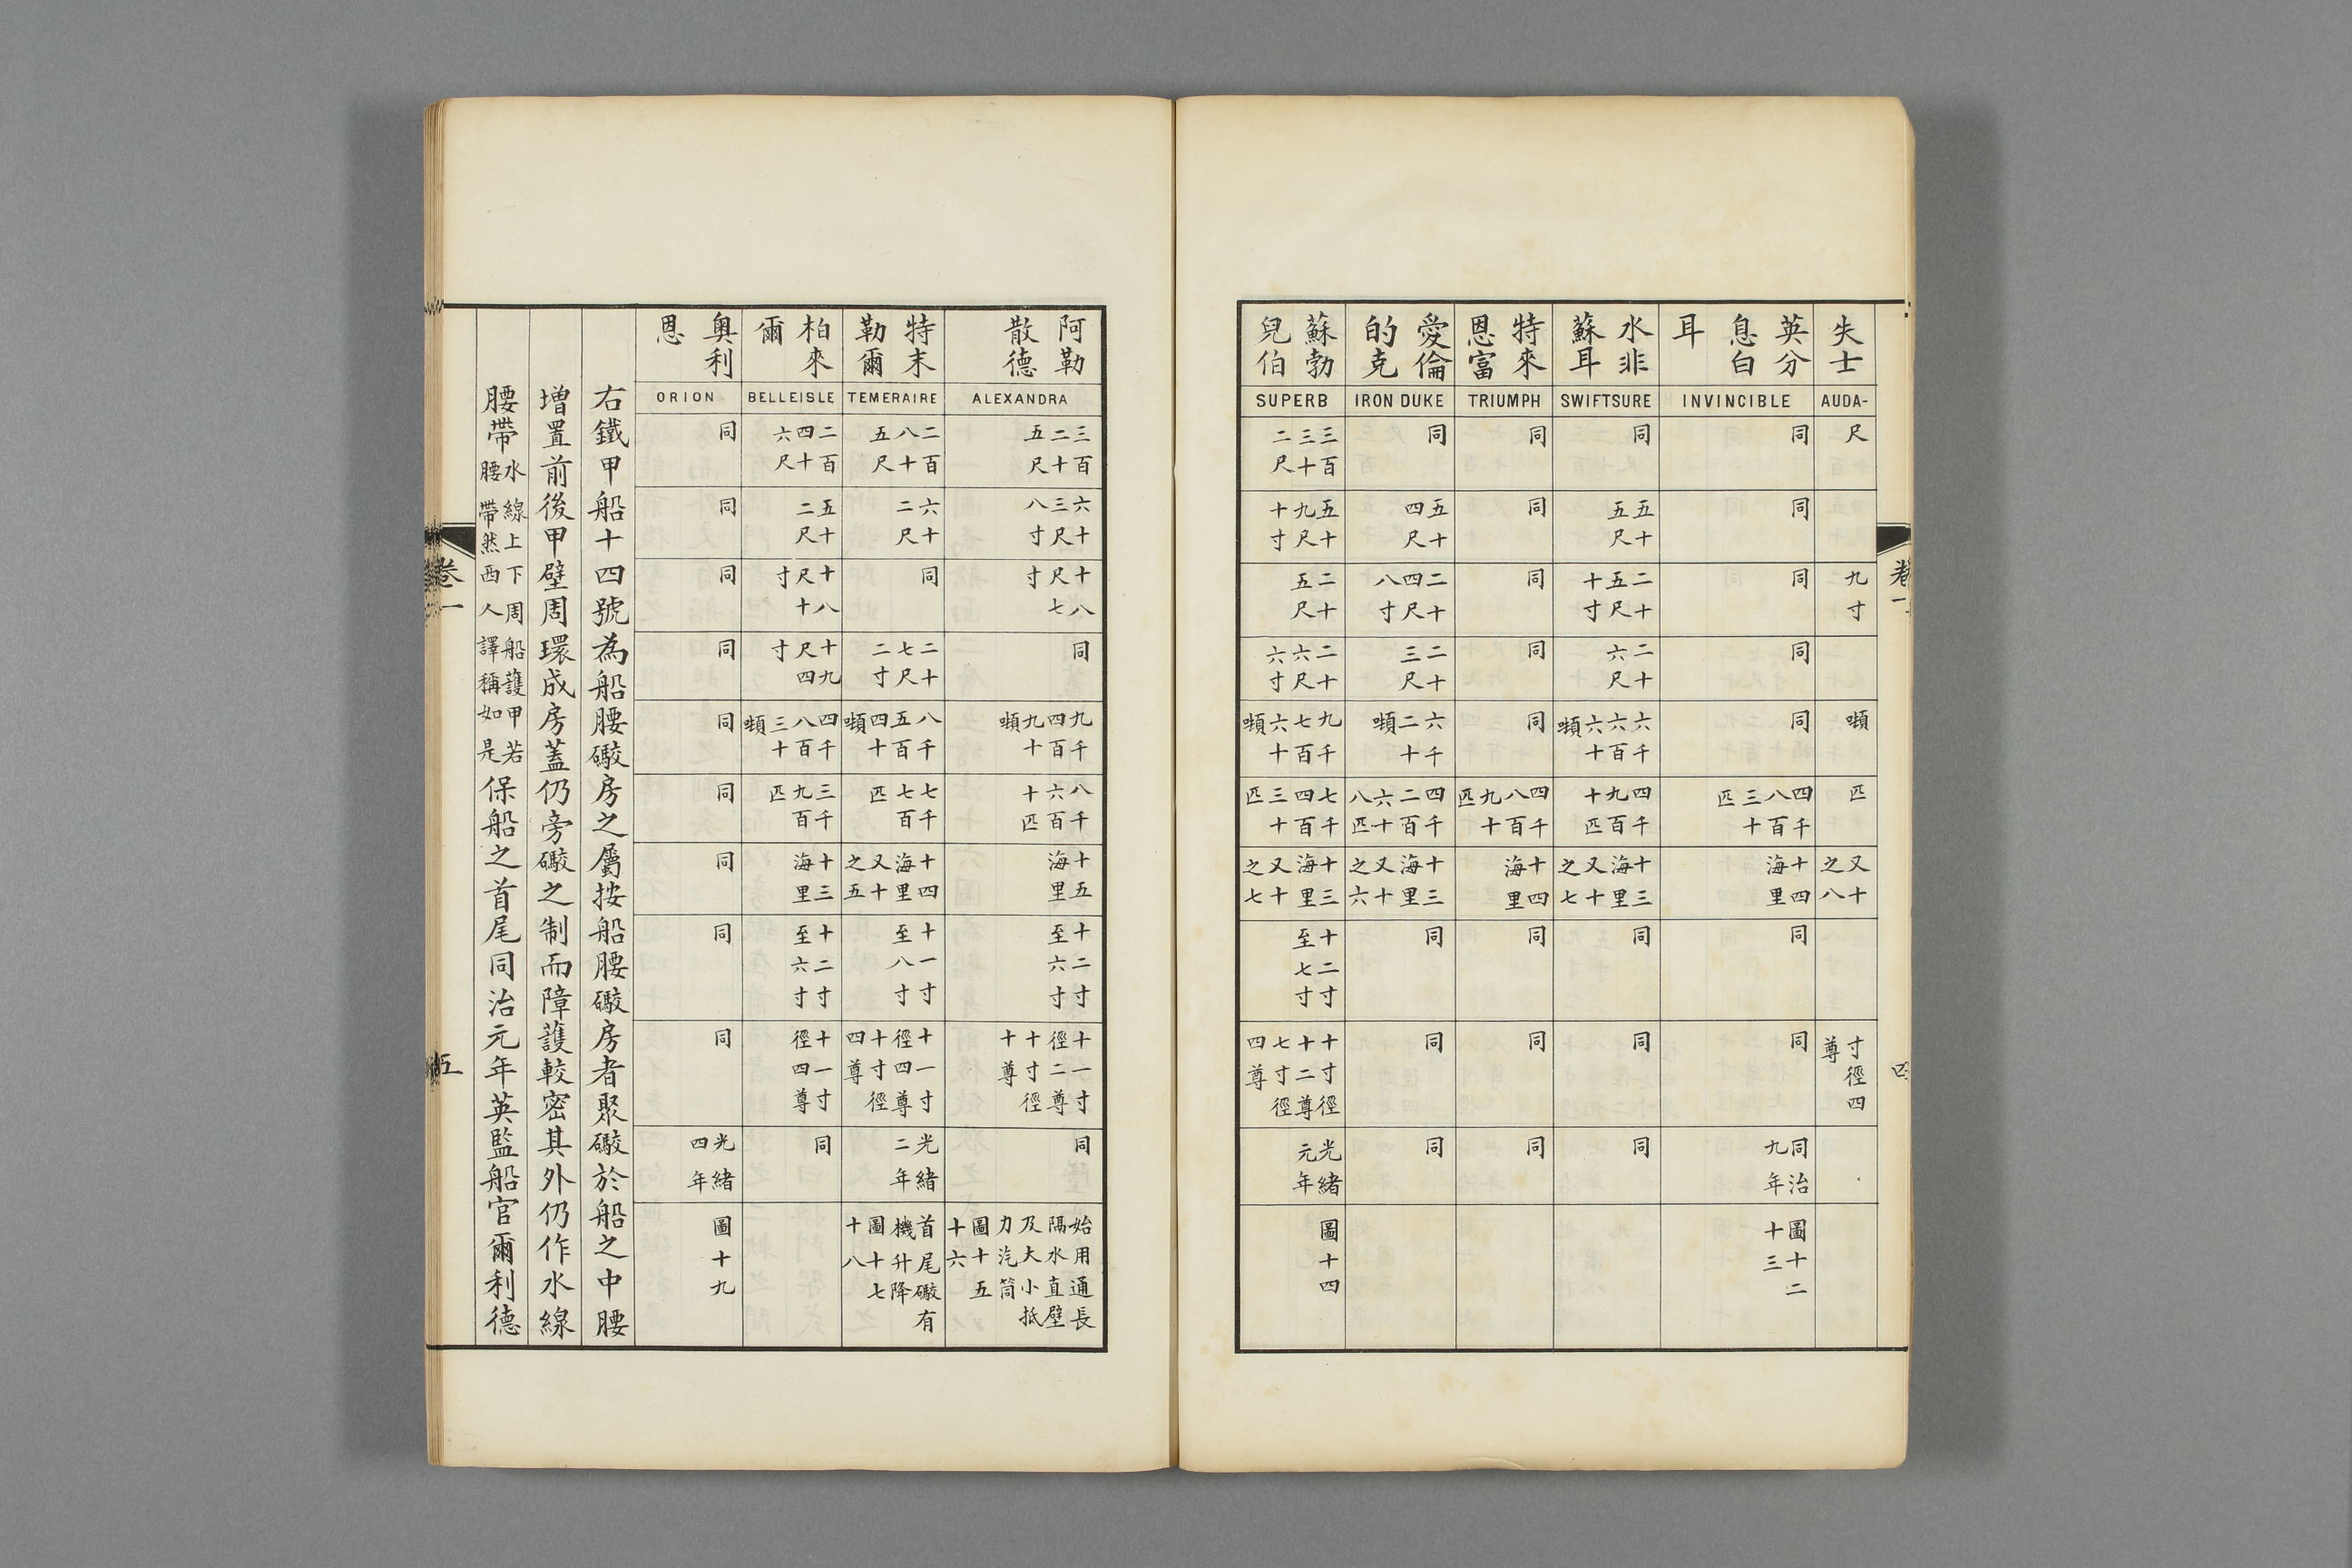 卷一
失士
AUDA-
尺
九寸
噸
匹
又十之八
寸徑四尊
英分息白耳
INVINCIBLE
同
同
同
同
同
四千八百三十匹
十四海里
同
同
同治九年
圖十二十三
水非蘇耳
SWIFTSURE
同
五十五尺
二十五尺十寸
二十六尺
六千六百六十噸
四千九百十匹
十三海里又十之七
同
同
同
特來恩富
TRIUMPH
同
同
同
同
同
四千八百九十匹
十四海里
同
同
同
愛倫的克
IRON DUKE
同
五十四尺
二十四尺八寸
二十三尺
六千二十噸
四千二百六十八匹
十三海里又十之六
同
同
同
蘇勃兒伯
SUPERB
三百三十二尺
五十九尺十寸
二十五尺
二十六尺六寸
九千七百六十噸
七千四百三十匹
十三海里又十之七
十二寸至七寸
十寸徑十二尊七寸徑四尊
光緒元年
圖十四
阿勒散德
ALEXANDRA
三百二十五尺
六十三尺八寸
十八尺七寸
同
九千四百九十噸
八千六百十匹
十五海里
十二寸至六寸
十一寸徑二尊十寸徑十尊
同
始用通長隔水直壁及大小抵力汽筒圖十五十六
特末勒爾
TEMERAIRE
二百八十五尺
六十二尺
同
二十七尺二寸
八千五百四十噸
七千七百匹
十四海里又十之五
十一寸至八寸
十一寸徑四尊十寸徑四尊
光緒二年
首尾礮有機升降圖十七十八
柏來爾
BELLEISLE
二百四十六尺
五十二尺
十八尺十寸
十九尺四寸
四千八百三十噸
三千九百匹
十三海里
十二寸至六寸
十一寸徑四尊
同
奧利恩
ORION
同
同
同
同
同
同
同
同
同
光緒四年
圖十九
右鐵甲船十四號為船腰礮房之屬按船腰礮房者聚礮於船之中腰
增置前後甲壁周環成房蓋仍旁礮之制而障護較密其外仍作水線
腰帶水線上下周船護甲若腰帶然西人譯稱如是保船之首尾同治元年英監船官爾利德
卷一
五